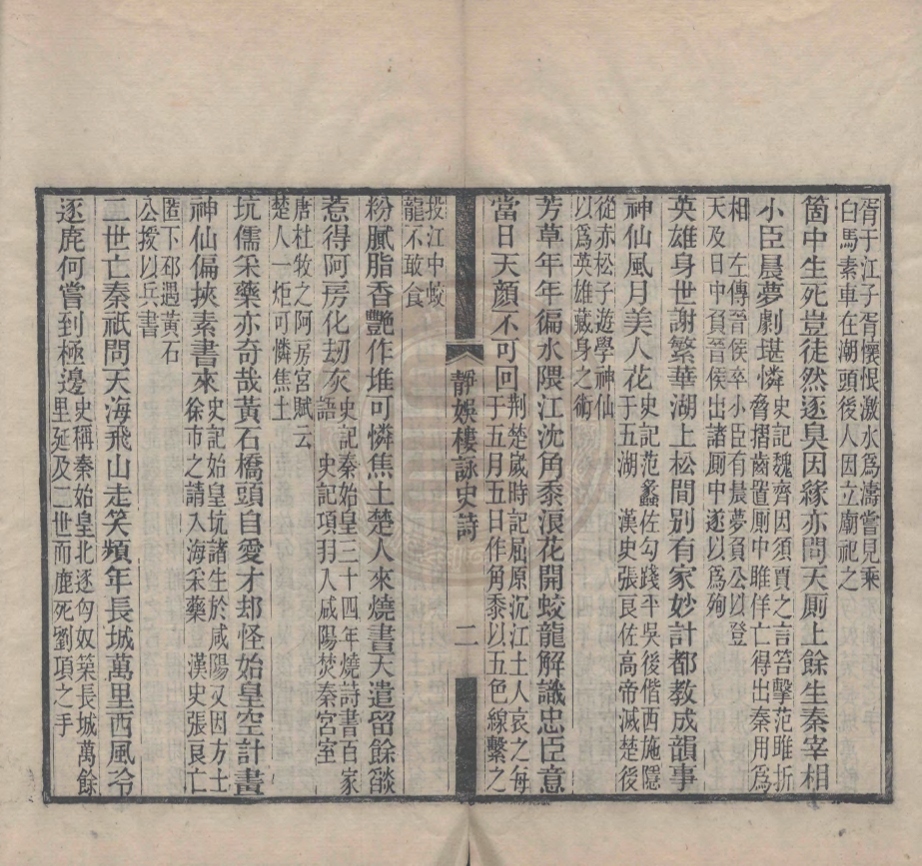 胥于江子胥懷恨激水爲濤嘗見乘
白馬素車在潮頭後人因立廟祀之
箇中生死豈徒然逐臭因緣亦問天厠上餘生秦宰相
小臣晨夢劇堪憐
史記魏齊因須賈之言笞擊范雎折
脅摺齒置厠中雎佯亡得出秦用爲
相　左傳晉侯卒小臣有晨夢負公以登
天及日中負晉侯出諸厠中遂以爲殉
英雄身世謝繁華湖上松間别有家妙計都教成韻事
神仙風月美人花
史記范蠡佐勾踐平吳後偕西施隱
于五湖　漢史張良佐高帝滅楚後
從赤松子遊學神仙
以爲英雄藏身之術
芳草年年徧水隈江沈角黍浪花開蛟龍解識忠臣意
當日天顏不可回
荆楚歲時記屈原沉江土人哀之每
于五月五日作角黍以五色線繫之
靜娛樓詠史詩
二
投江中蛟
龍不敢食
粉膩脂香艷作堆可憐焦土楚人來燒書天遣留餘燄
惹得阿房化刧灰
史記秦始皇三十四年燒詩書百家
語　史記項羽入咸陽焚秦宮室
唐杜牧之阿房宮賦云
楚人一炬可憐焦土
坑儒采藥亦奇哉黃石橋頭自愛才却怪始皇空計畫
神仙偏挾素書來
史記始皇坑諸生於咸陽又因方士
徐市之請入海采藥　漢史張良亡
匿下邳遇黃石
公授以兵書
二世亡秦祇問天海飛山走笑頻年長城萬里西風冷
逐鹿何嘗到極邊
史稱秦始皇北逐匈奴築長城萬餘
里延及二世而鹿死劉項之手